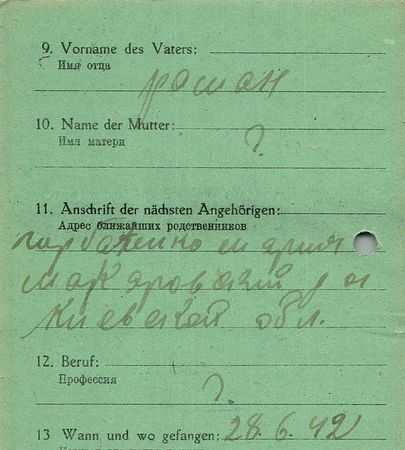 9. Vorname des Vaters:
Имя отца
роман
10. Name der Mutter:
Имя матери
?
11. Anschrift der nächsten Angehörigen:
Адрес ближайших родственников
мария
макаровский р н
киевская обл.
12. Beruf:
Профессия
?
13 Wann und wo gefangen: 28.6.42